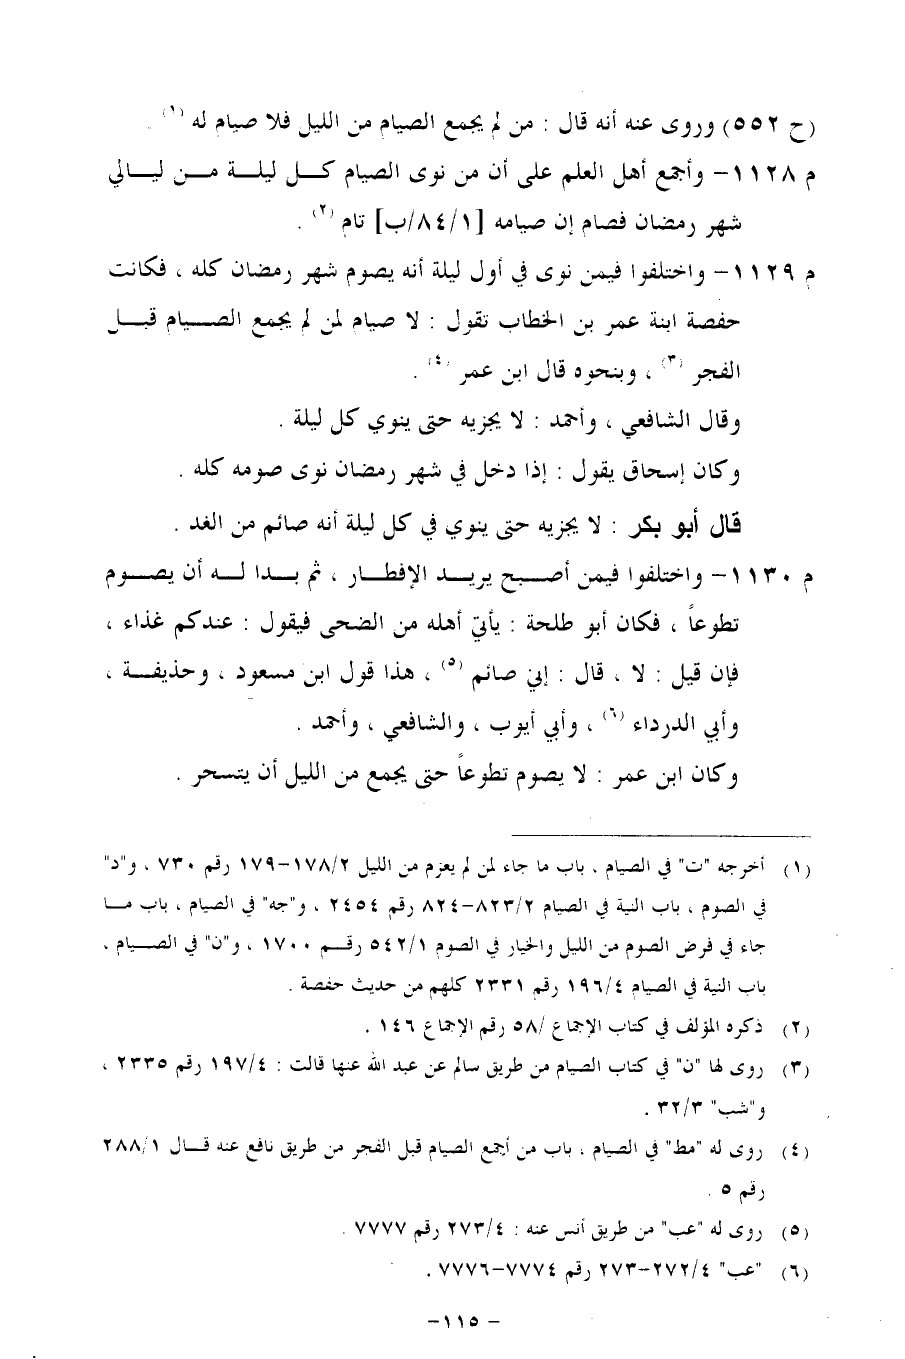 (ح ٥٥٢) وروى عنه أنه قال : من لم يجمع الصيام من الليل فلا صيام له (١) .
م ١١٢٨- وأجمع أهل العلم على أن من نوى الصيام كل ليلة من ليالي
شهر رمضان فصام إن صيامه [٨٤/١/ب] تام (٢) .
م ١١٢٩- واختلفوا فيمن نوى في أول ليلة أنه يصوم شهر رمضان كله ، فكانت
حفصة ابنة عمر بن الخطاب تقول : لا صيام لمن لم يجمع الصيام قبل
الفجر (٣) ، وبنحوه قال ابن عمر (٤) .
وقال الشافعي ، وأحمد : لا يجزيه حتى ينوي كل ليلة .
وكان إسحاق يقول : إذا دخل في شهر رمضان نوى صومه كله .
قال أبو بكر : لا يجزيه حتى ينوي في كل ليلة أنه صائم من الغد .
م ١١٣٠- واختلفوا فيمن أصبح يريد الإفطار ، ثم بدا له أن يصوم
تطوعاً ، فكان أبو طلحة : يأتي أهله من الضحى فيقول : عندكم غذاء ،
فإن قيل : لا ، قال : إني صائم (٥) ، هذا قول ابن مسعود ، وحذيفة ،
وأبي الدرداء (٦) ، وأبي أيوب ، والشافعي ، وأحمد .
وكان ابن عمر : لا يصوم تطوعاً حتى يجمع من الليل أن يتسحر .
(١) أخرجه "ت" في الصيام ، باب ما جاء لمن لم يعزم من الليل ١٧٨/٢-١٧٩ رقم ٧٣٠ ، و"د"
في الصوم ، باب النية في الصيام ٨٢٣/٢-٨٢٤ رقم ٢٤٥٤ ، و"جه" في الصيام ، باب ما
جاء في فرض الصوم من الليل والخيار في الصوم ٥٤٢/١ رقم ١٧٠٠ ، و"ن" في الصيام ،
باب النية في الصيام ١٩٦/٤ رقم ٢٣٣١ كلهم من حديث حفصة .
(٢) ذكره المؤلف في كتاب الإجماع /٥٨ رقم الإجماع ١٤٦ .
(٣) روى لها "ن" في كتاب الصيام من طريق سالم عن عبد الله عنها قالت : ١٩٧/٤ رقم ٢٣٣٥ ،
و"شب" ٣٢/٣ .
(٤) روى له "مط" في الصيام ، باب من أجمع الصيام قبل الفجر من طريق نافع عنه قال ٢٨٨/١
رقم ٥ .
(٥) روى له "عب" من طريق أنس عنه : ٢٧٣/٤ رقم ٧٧٧٧ .
(٦) "عب" ٢٧٢/٤-٢٧٣ رقم ٧٧٧٤-٧٧٧٦ .
- ١١٥-